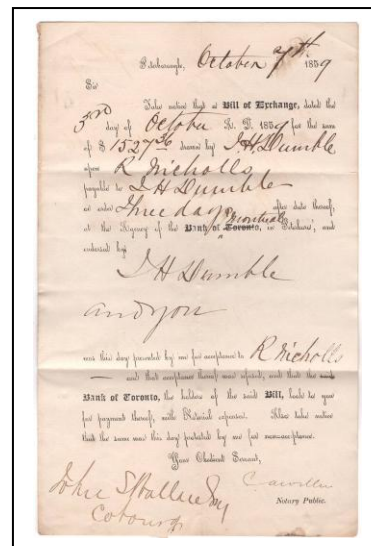 Peterborough, October 7th 1859
Sir
Take notice that a Bill of Exchange, dated the
3rd day of October A. D. 1859 for the sum
of $ 1527 36 drawn by J H Dumble
upon R Nicholls
payable to J H Dumble
or order Three days after date thereof,
at the Agency of the Bank of Toronto, Montreal in Peterboro', and
endorsed by
J H Dumble
and you
was this day presented by me for acceptance to R Nicholls
and that acceptance thereof was refused, and that the said
Bank of Toronto, the holders of the said Bill, looks to you
for payment thereof, with Notarial expenses. Also take notice
that the same was this day protested by me for nonacceptance.
Your Obedient Servant,
Notary Public.
John S Wallace Esq
Cobourg